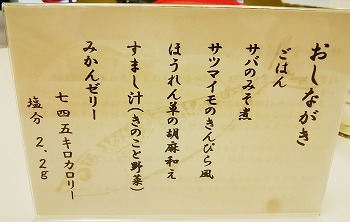 おしながき
ごはん
サバのみそ煮
サツマイモのきんぴら風
ほうれん草の胡麻和え
すまし汁(きのこと野菜)
みかんゼリー
七四五キロカロリー
塩分 2.2g